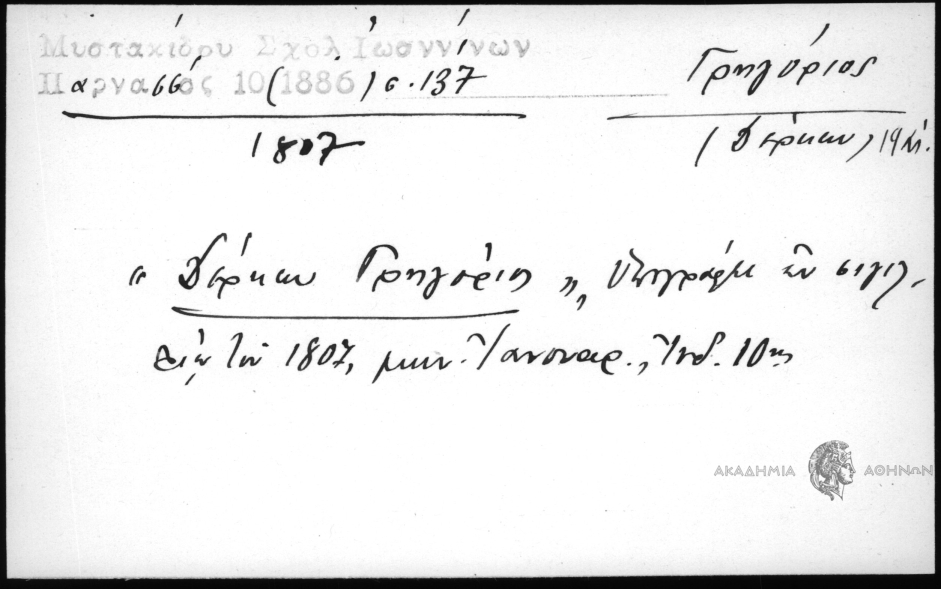 Μυστακίδου Σχολ Ἰωαννίνων
Παρνασσός 10 (1886) σ. 137
Γρηγόριος
1807
(Δέρκων) 19 αἰ.
« Δέρκων Γρηγόριος », ὑπογράφει ἐν σιγιλ-
λίῳ τοῦ 1807, μην. Ἰανουαρ., Ἰνδ. 10ης
ΑΚΑΔΗΜΙΑ ΑΘΗΝΩΝ